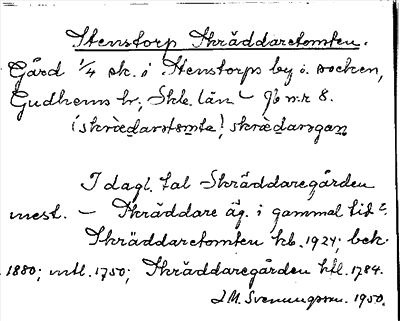 Stenstorp Skräddaretomten.
Gård 1/4 sk. i Stenstorps by i. socken,
Gudhems hr, Skbg. län – jb nr 8.
i skrædarstomta! skrædargan
I dagl. tal Skräddaregården
mest. – Skräddare äg. i gammal tid
Skräddaretomten kb. 1924; bek.
1880; mtl. 1750; Skräddaregården hfl. 1784.
J.M. Svenungsson. 1950.